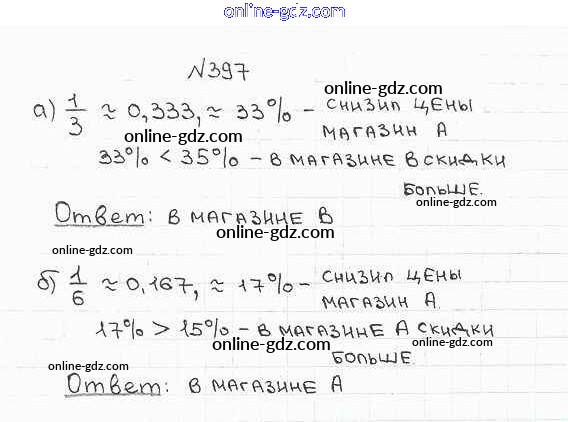 online-gdz.com
№397
а) 1/3 ≈ 0,333, ≈ 33% – снизил цены
online-gdz.com
online-gdz.com
магазин А
33% < 35% – в магазине В скидки
online-gdz.com
больше.
online-gdz.com
Ответ: в магазине В
online-gdz.com
online-gdz.com
б) 1/6 ≈ 0,167, ≈ 17% – снизил цены
online-gdz.com
магазин А.
17% > 15% – в магазине А скидки
online-gdz.com
больше.
online-gdz.com
online-gdz.com
Ответ: в магазине А
online-gdz.com